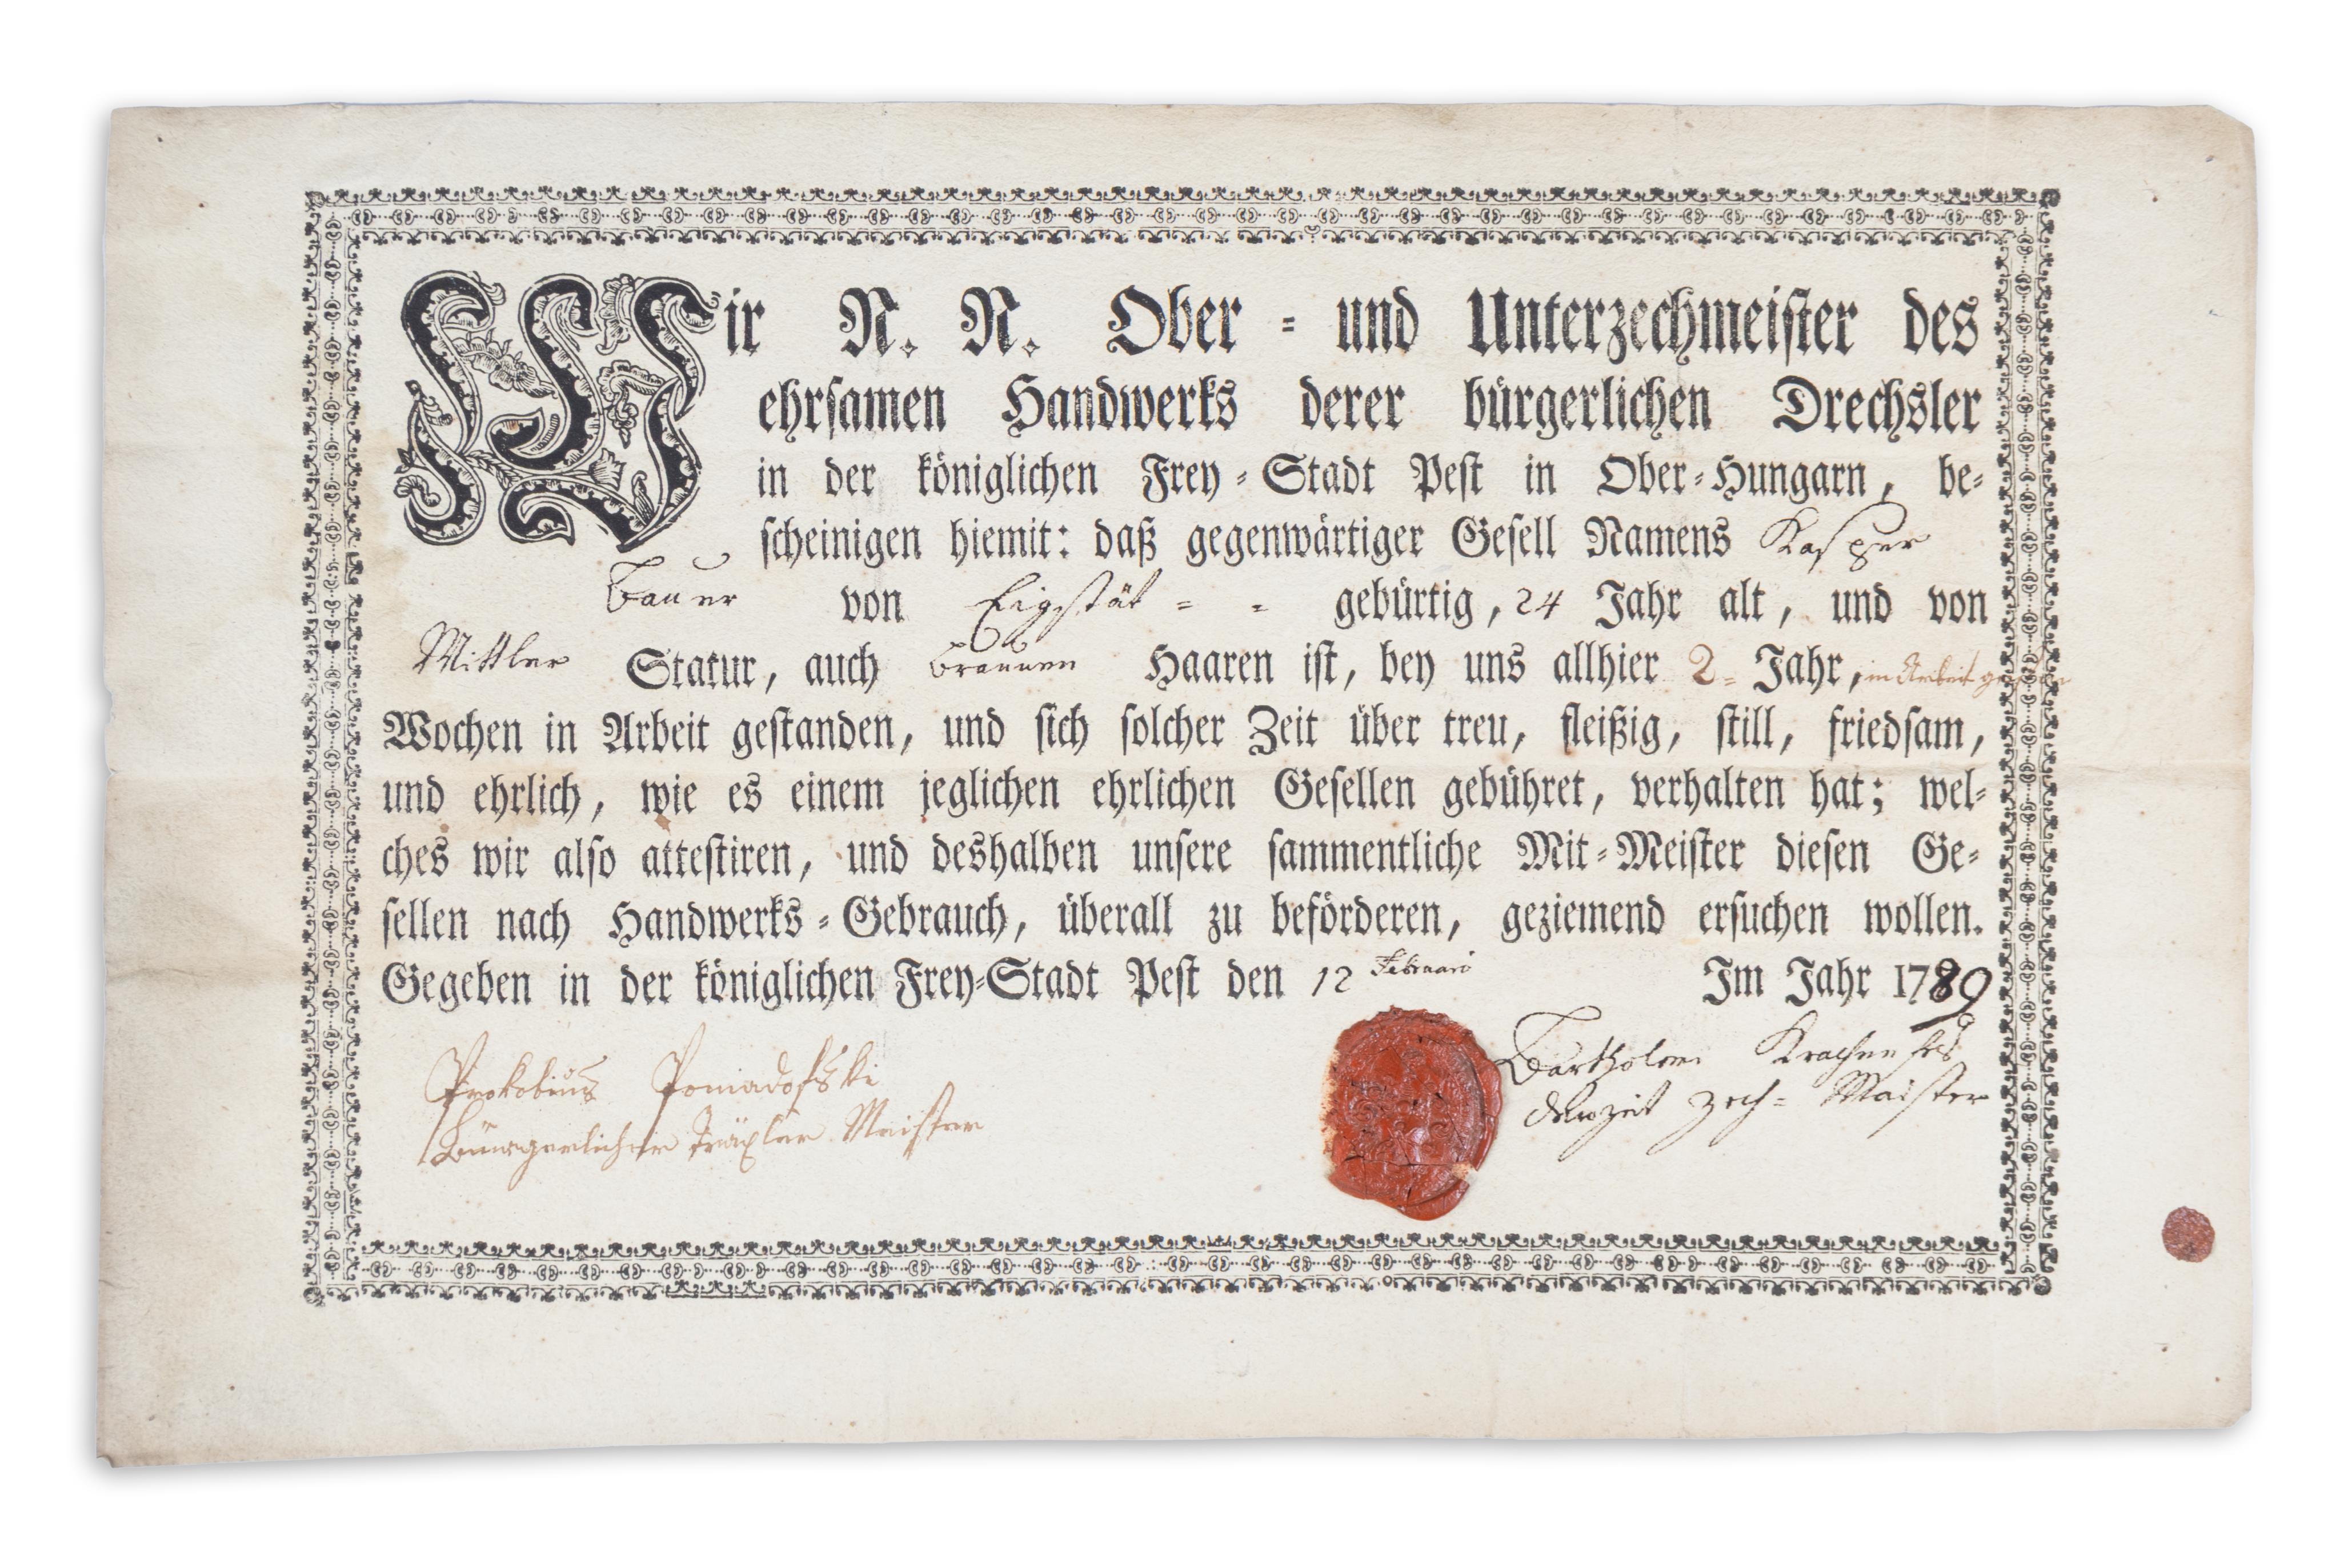 Wir N. N. Ober = und Unterzechmeister des
ehrsamen Handwerks derer bürgerlichen Drechsler
in der königlichen Frey=Stadt Pest in Ober=Hungarn, be=
scheinigen hiemit: daß gegenwärtiger Gesell Namens Kasper
Bauer von Eigstät = = gebürtig, 24 Jahr alt, und von
Mittler Statur, auch braunen Haaren ist, bey uns allhier 2= Jahr, in Arbeit
Wochen in Arbeit gestanden, und sich solcher Zeit über treu, fleißig, still, friedsam,
und ehrlich, wie es einem jeglichen ehrlichen Gesellen gebühret, verhalten hat; wel=
ches wir also attestiren, und deshalben unsere sammentliche Mit=Meister diesen Ge=
sellen nach Handwerks=Gebrauch, überall zu beförderen, geziemend ersuchen wollen.
Gegeben in der königlichen Frey=Stadt Pest den 12 Februari Im Jahr 1789
Prokobius Poniadofski
Buergerlicher Träxler Meister
Bartholome
derzeit Zech= Maister